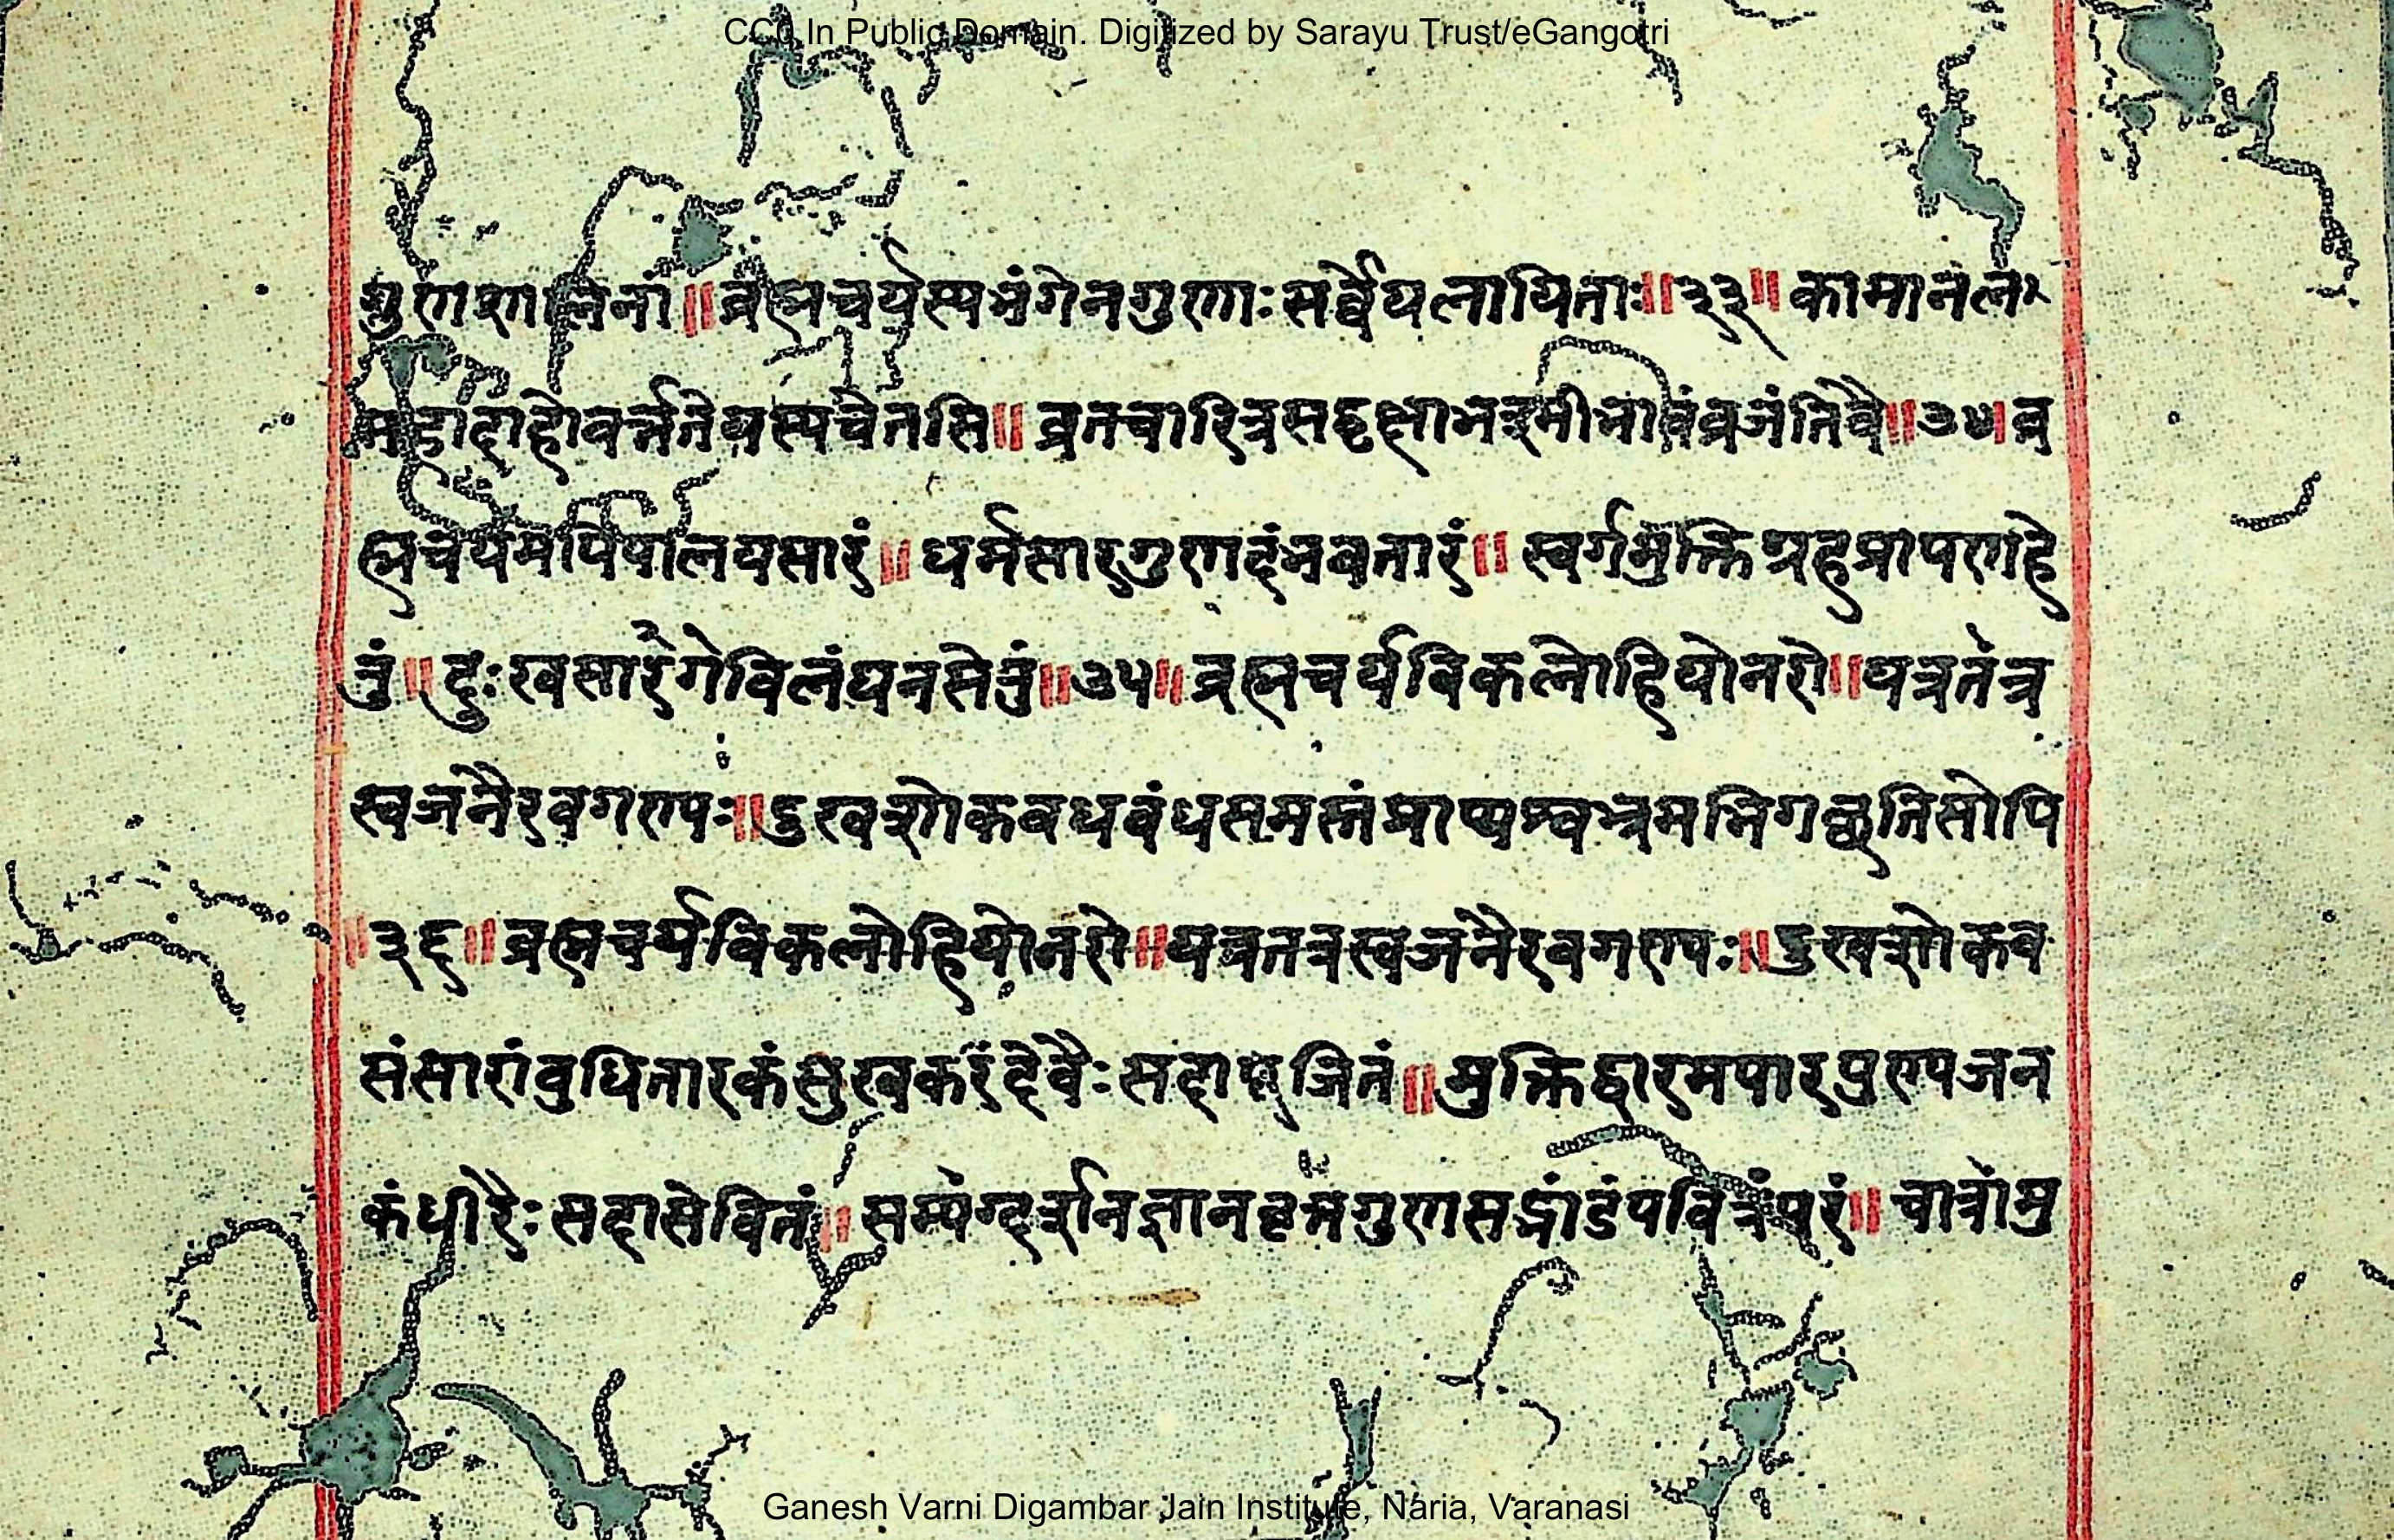 CC0 In Public Domain. Digitized by Sarayu Trust/eGangotri
गुणशालिनां॥ब्रह्मचर्यस्यभंगेनगुणाःसर्व्वेपलायिताः॥३३॥कामानल
महादाहोवर्त्ततेयस्यचेतसि॥व्रतचारित्रसद्दृ व्रजंतिवै॥३४।ब्र
ह्मचर्यमपिपालयसारं॥धर्मसारगुणदंभवतारं॥स्वर्गमुक्तिग्रहप्रापणहे
तुं॥दुःखसागरेविलंघनसेतुं॥३५॥ब्रह्मचर्यविकलोहियोनरो॥यत्रतत्र
स्वजनैरवगण्यः॥दुखशोकवधबंधसमस्तंप्राप्यश्वभ्रमभिगच्छतिसोपि
॥३६॥ब्रह्मचर्यविकलोहियोनरो॥यत्रतत्रस्वजनैरवगण्यः॥दुखशोकव
संसारांबुधितारकंसुखकरंदेवैःसदापूजितं॥मुक्तिद्वारमपारपुण्यजन
कंधीरैःसदासेवितं॥सम्यग्दर्शनज्ञानवृत्तगुणसद्भांडंपवित्रंपरं॥चात्रामु
Ganesh Varni Digambar Jain Institute, Naria, Varanasi